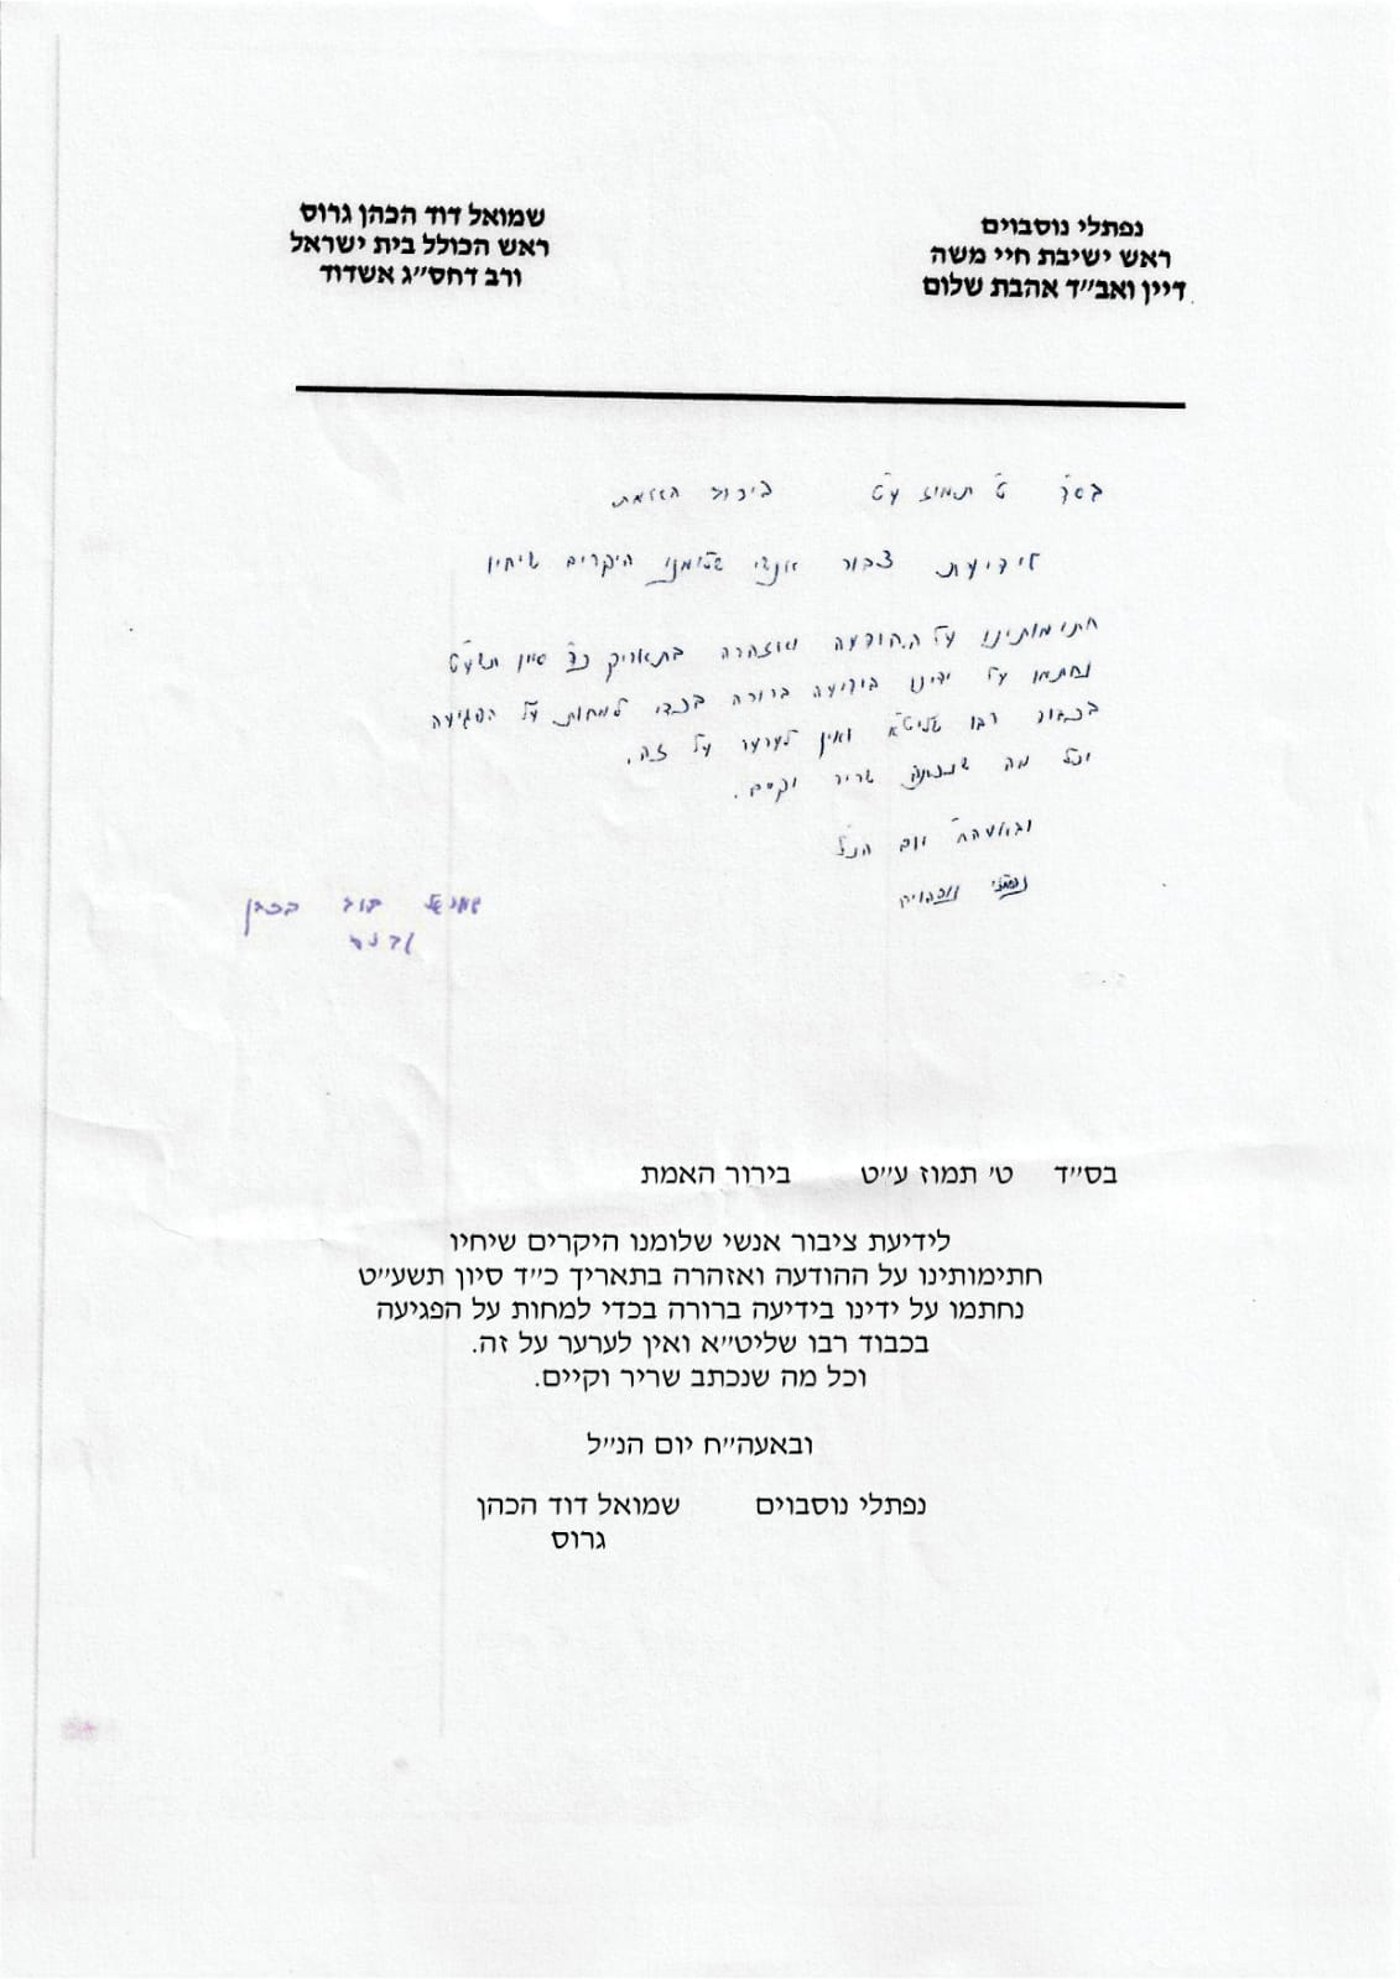 נפתלי נוסבוים
ראש ישיבת חיי משה
דיין ואב״ד אהבת שלום
שמואל דוד הכהן גרוס
ראש הכולל בית ישראל
ורב דחס״ג אשדוד
בס״ד ט׳ תמוז ע״ט בירור האמת
לידיעת ציבור אנשי שלומנו היקרים שיחיו
חתימותינו על ההודעה ואזהרה בתאריך כ״ד סיון תשע״ט
נחתמו על ידינו בידיעה ברורה בכדי למחות על הפגיעה
בכבוד רבו שליט״א ואין לערער על זה.
וכל מה שנכתב שריר וקים.
ובאעה״ח יום הנ״ל
נפתלי נוסבוים
שמואל דוד הכהן
גרוס
בס״ד ט׳ תמוז ע״ט בירור האמת
לידיעת ציבור אנשי שלומנו היקרים שיחיו
חתימותינו על ההודעה ואזהרה בתאריך כ״ד סיון תשע״ט
נחתמו על ידינו בידיעה ברורה בכדי למחות על הפגיעה
בכבוד רבו שליט״א ואין לערער על זה.
וכל מה שנכתב שריר וקיים.
ובאעה״ח יום הנ״ל
נפתלי נוסבוים שמואל דוד הכהן
גרוס